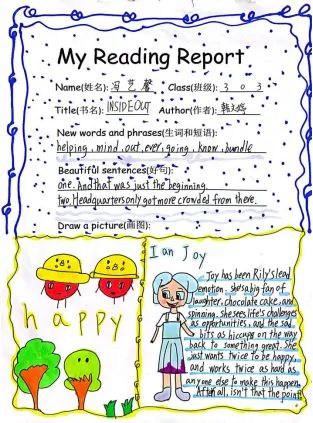 My Reading Report
Name(姓名): 冯艺馨 Class(班级): 303
Title(书名): INSIDEOUT Author(作者): 韩文婷
New words and phrases(生词和短语):
helping, mind, out, ever, going, know, bundle
Beautiful sentences(好句):
one. And that was just the beginning.
two. Headquarters only got more crowded from there.
Draw a picture(画图):
happy
I an Joy
Joy has been Rily's lead
emotion. she's a big fan of
laughter, chocolate cake, and
spinning. she sees life's challenges
as opportunities, and the sad
bits as hiccups on the way
back to something great. She
just wants twice to be happy,
and works twice as hard as
anyone else to make this happen.
After all, isn't that the point